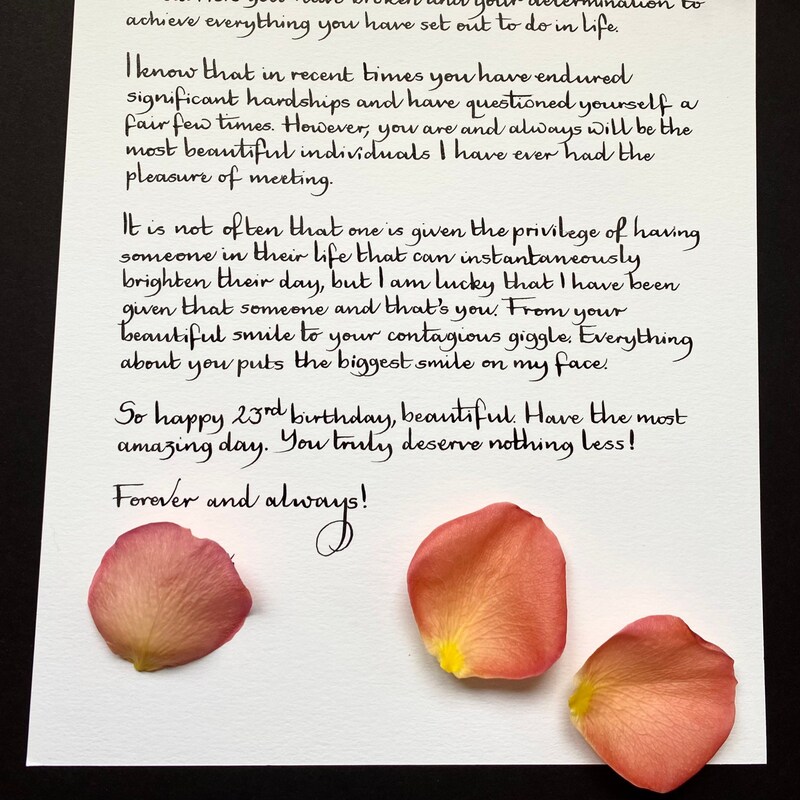 you have broken and your determination to
achieve everything you have set out to do in life.
I know that in recent times you have endured
significant hardships and have questioned yourself a
fair few times. However, you are and always will be the
most beautiful individuals I have ever had the
pleasure of meeting.
It is not often that one is given the privilege of having
someone in their life that can instantaneously
brighten their day, but I am lucky that I have been
given that someone and that's you. From your
beautiful smile to your contagious giggle. Everything
about you puts the biggest smile on my face.
So happy 23rd birthday, beautiful. Have the most
amazing day. You truly deserve nothing less!
Forever and always!